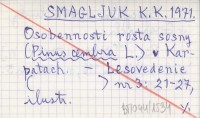 SMAGLJUK K.K. 1971.
Osobennosti rosta sosny
(Pinus cembra L.) v Kar-
patach. - Lesovedenie
nr 3: 21-27,
ilustr.